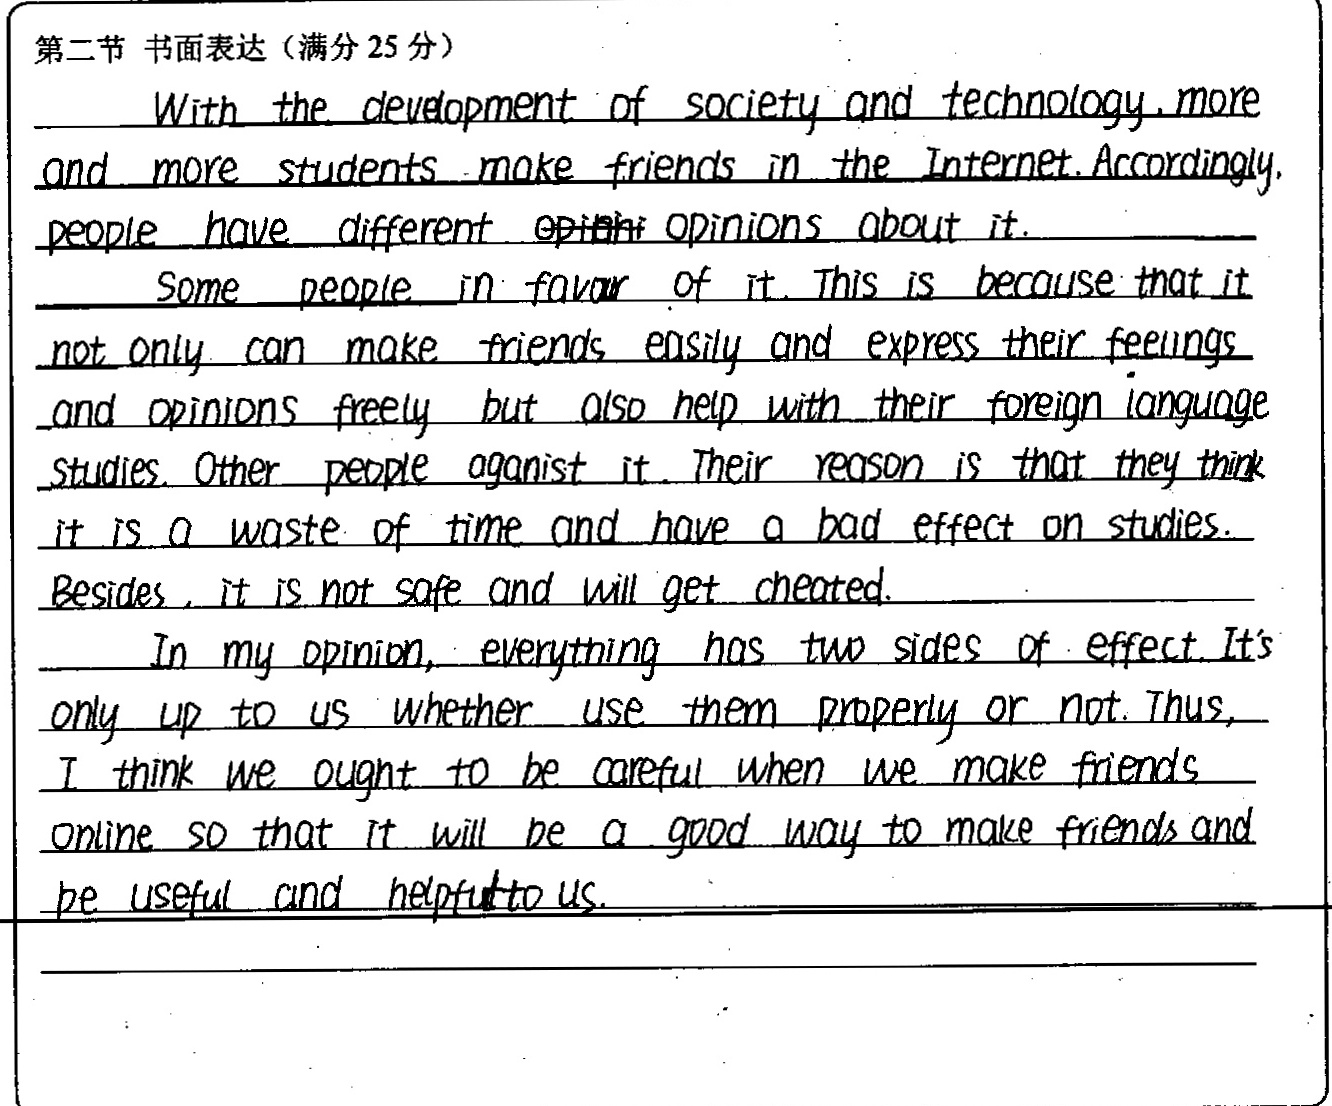 第二节 书面表达（满分 25 分）
With the development of society and technology, more
and more students make friends in the Internet. Accordingly,
people have different opinions about it.
Some people in favor of it. This is because that it
not only can make friends easily and express their feelings
and opinions freely but also help with their foreign language
studies. Other people aganist it. Their reason is that they think
it is a waste of time and have a bad effect on studies.
Besides, it is not safe and will get cheated.
In my opinion, everything has two sides of effect. It's
only up to us whether use them properly or not. Thus,
I think we ought to be careful when we make friends
online so that it will be a good way to make friends and
be useful and helpful to us.